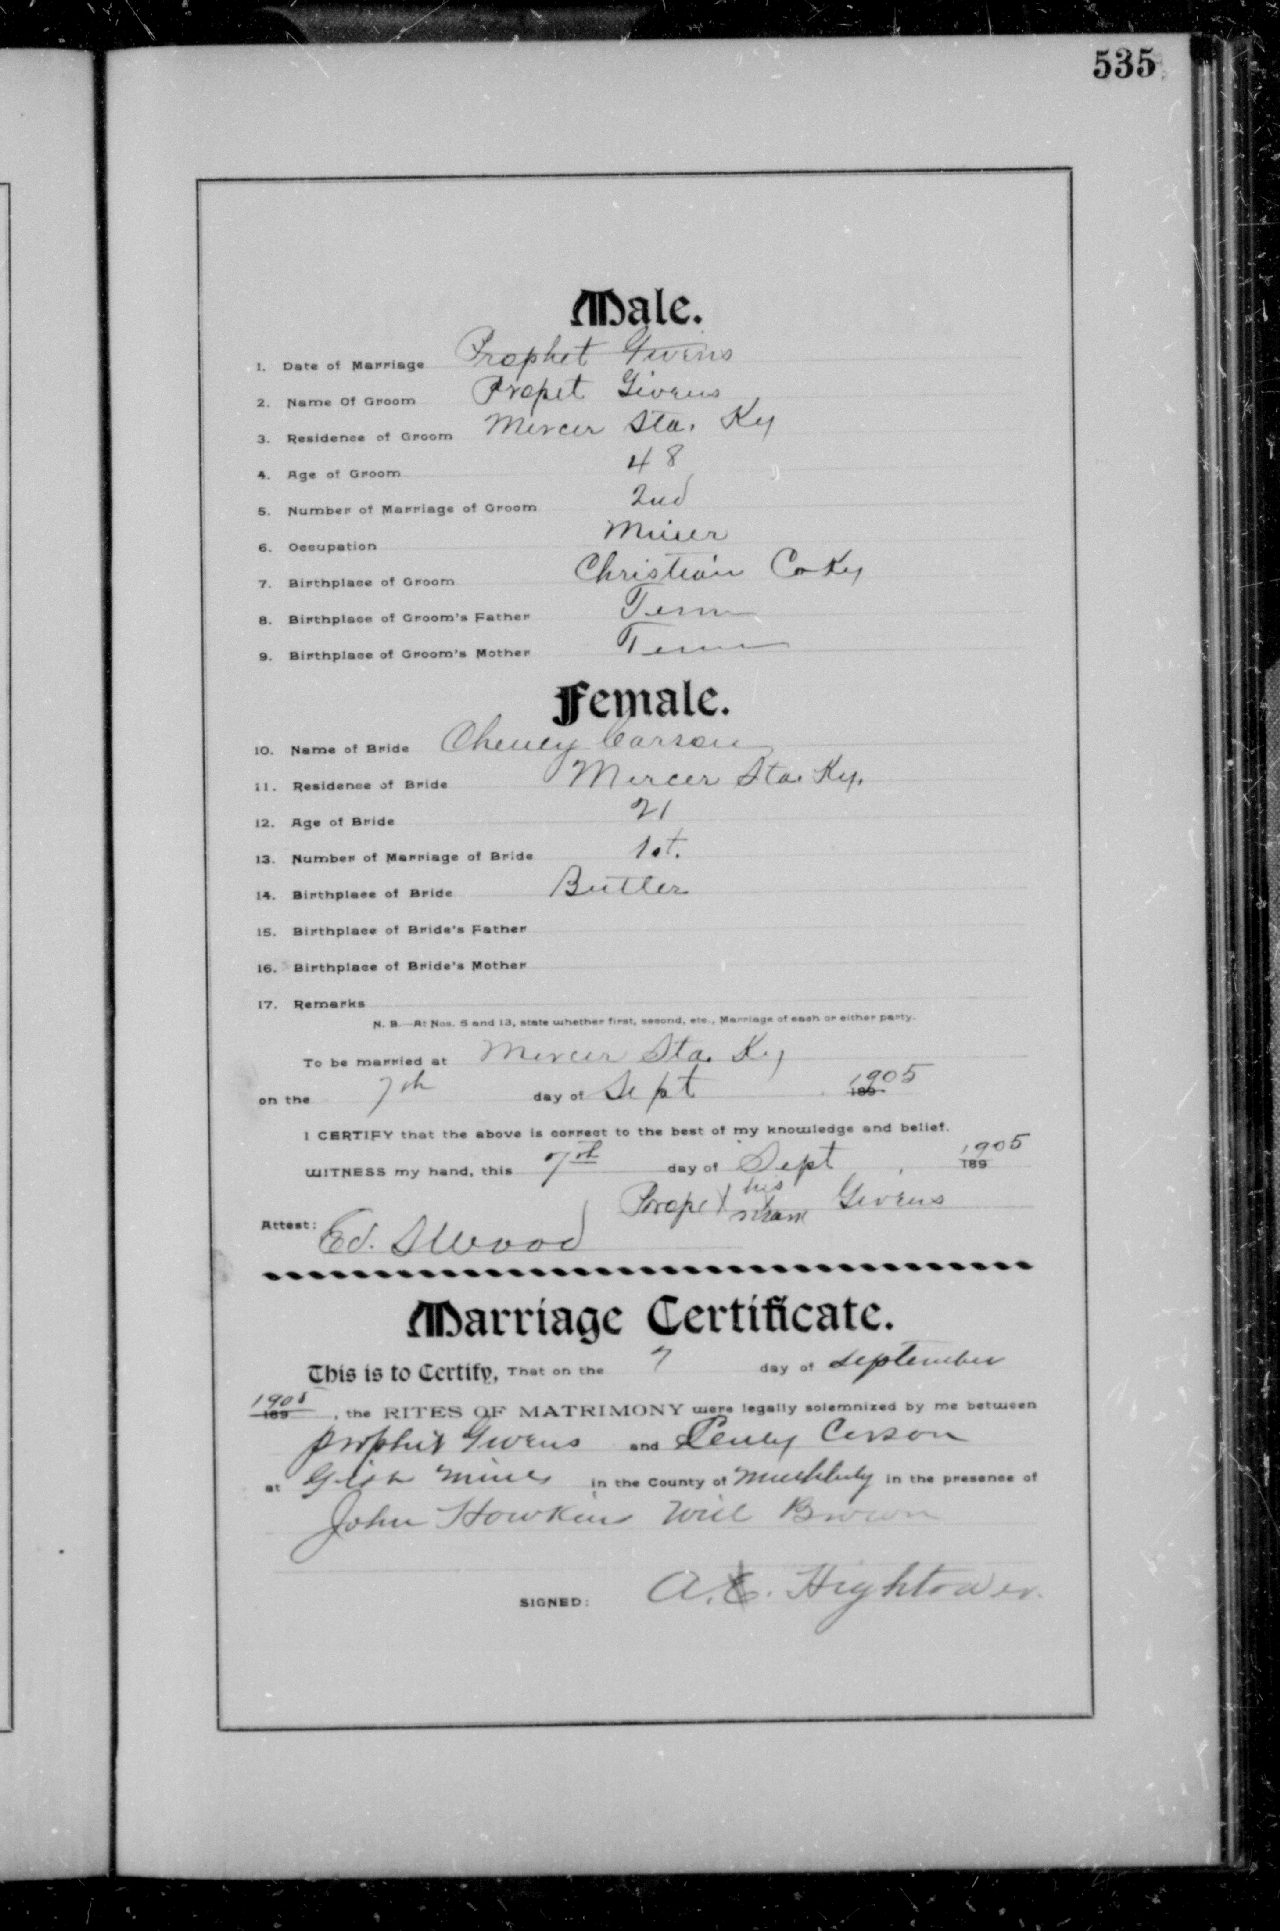 535
Male.
1. Date of Marriage Prophet Givens
2. Name Of Groom Propet Givens
3. Residence of Groom Mercer Sta. Ky
4. Age of Groom 48
5. Number of Marriage of Groom 2nd
6. Occupation Miner
7. Birthplace of Groom Christian Co Ky
8. Birthplace of Groom's Father Tenn
9. Birthplace of Groom's Mother Tenn
Female.
10. Name of Bride Cheney Carson
11. Residence of Bride Mercer Sta. Ky.
12. Age of Bride 21
13. Number of Marriage of Bride 1st.
14. Birthplace of Bride Butler
15. Birthplace of Bride's Father
16. Birthplace of Bride's Mother
17. Remarks
N. B.—At Nos. 5 and 13, state whether first, second, etc., Marriage of each or either party.
To be married at Mercer Sta. Ky
on the 7th day of Sept 189 1905
I CERTIFY that the above is correct to the best of my knowledge and belief.
WITNESS my hand, this 7th day of Sept, 189 1905
Propet X his mark Givens
Attest: Ed. S Wood
Marriage Certificate.
This is to Certify, That on the 7 day of September
189 1905, the RITES OF MATRIMONY were legally solemnized by me between
Prophet Givens and Ceney Cerson
at Gish Mines in the County of in the presence of
John Howkins Will Brown
SIGNED: A. C. Hightower.